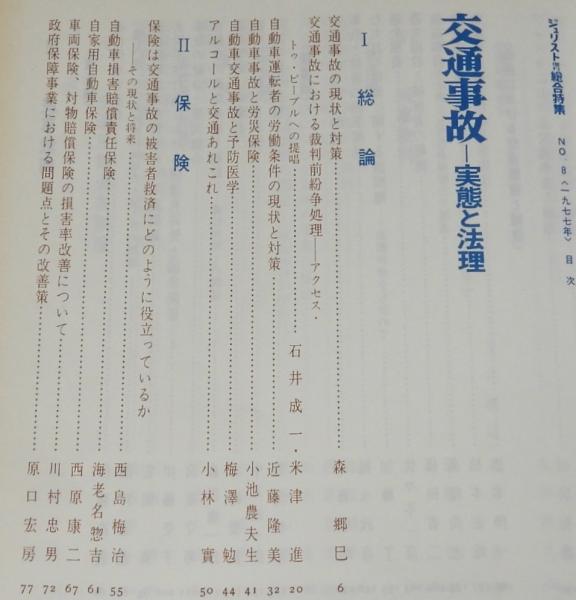 ジュリスト増刊総合特集 NO.8〈一九七七年〉 目次
交通事故―実態と法理
Ⅰ 総論
交通事故の現状と対策……森郷巳 6
交通事故における裁判前紛争処理――アクセス・
トゥ・ピープルへの提唱……石井成一・米津進 20
自動車運転者の労働条件の現状と対策……近藤隆美 32
自動車事故と労災保険……小池農夫生 41
自動車交通事故と予防医学……梅澤勉 44
アルコールと交通あれこれ……小林實 50
Ⅱ 保険
保険は交通事故の被害者救済にどのように役立っているか
――その現状と将来
自動車損害賠償責任保険……西島梅治 55
自家用自動車保険……海老名惣吉 61
車両保険、対物賠償保険の損害率改善について……西原康二 67
政府保障事業における問題点とその改善策……川村忠男 72
原口宏房 77